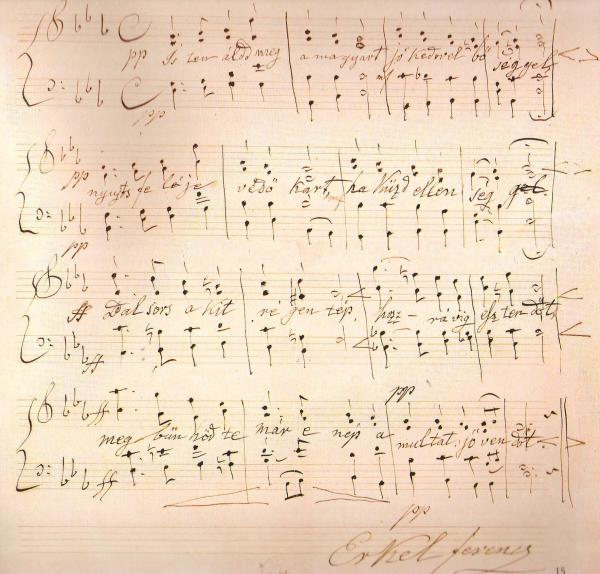 pp Is ten áldd meg a magyart jó kedvvel bö séggel
pp
pp nyujts fe léje védö kart ha küzd ellen ség gel.
pp
ff Bal sors a kit ré gen tép, hoz - rá víg esz ten döt
ff
ff pp
meg bün höd te már e nép a multat jöven döt
ff
pp
Erkel ferencz
15